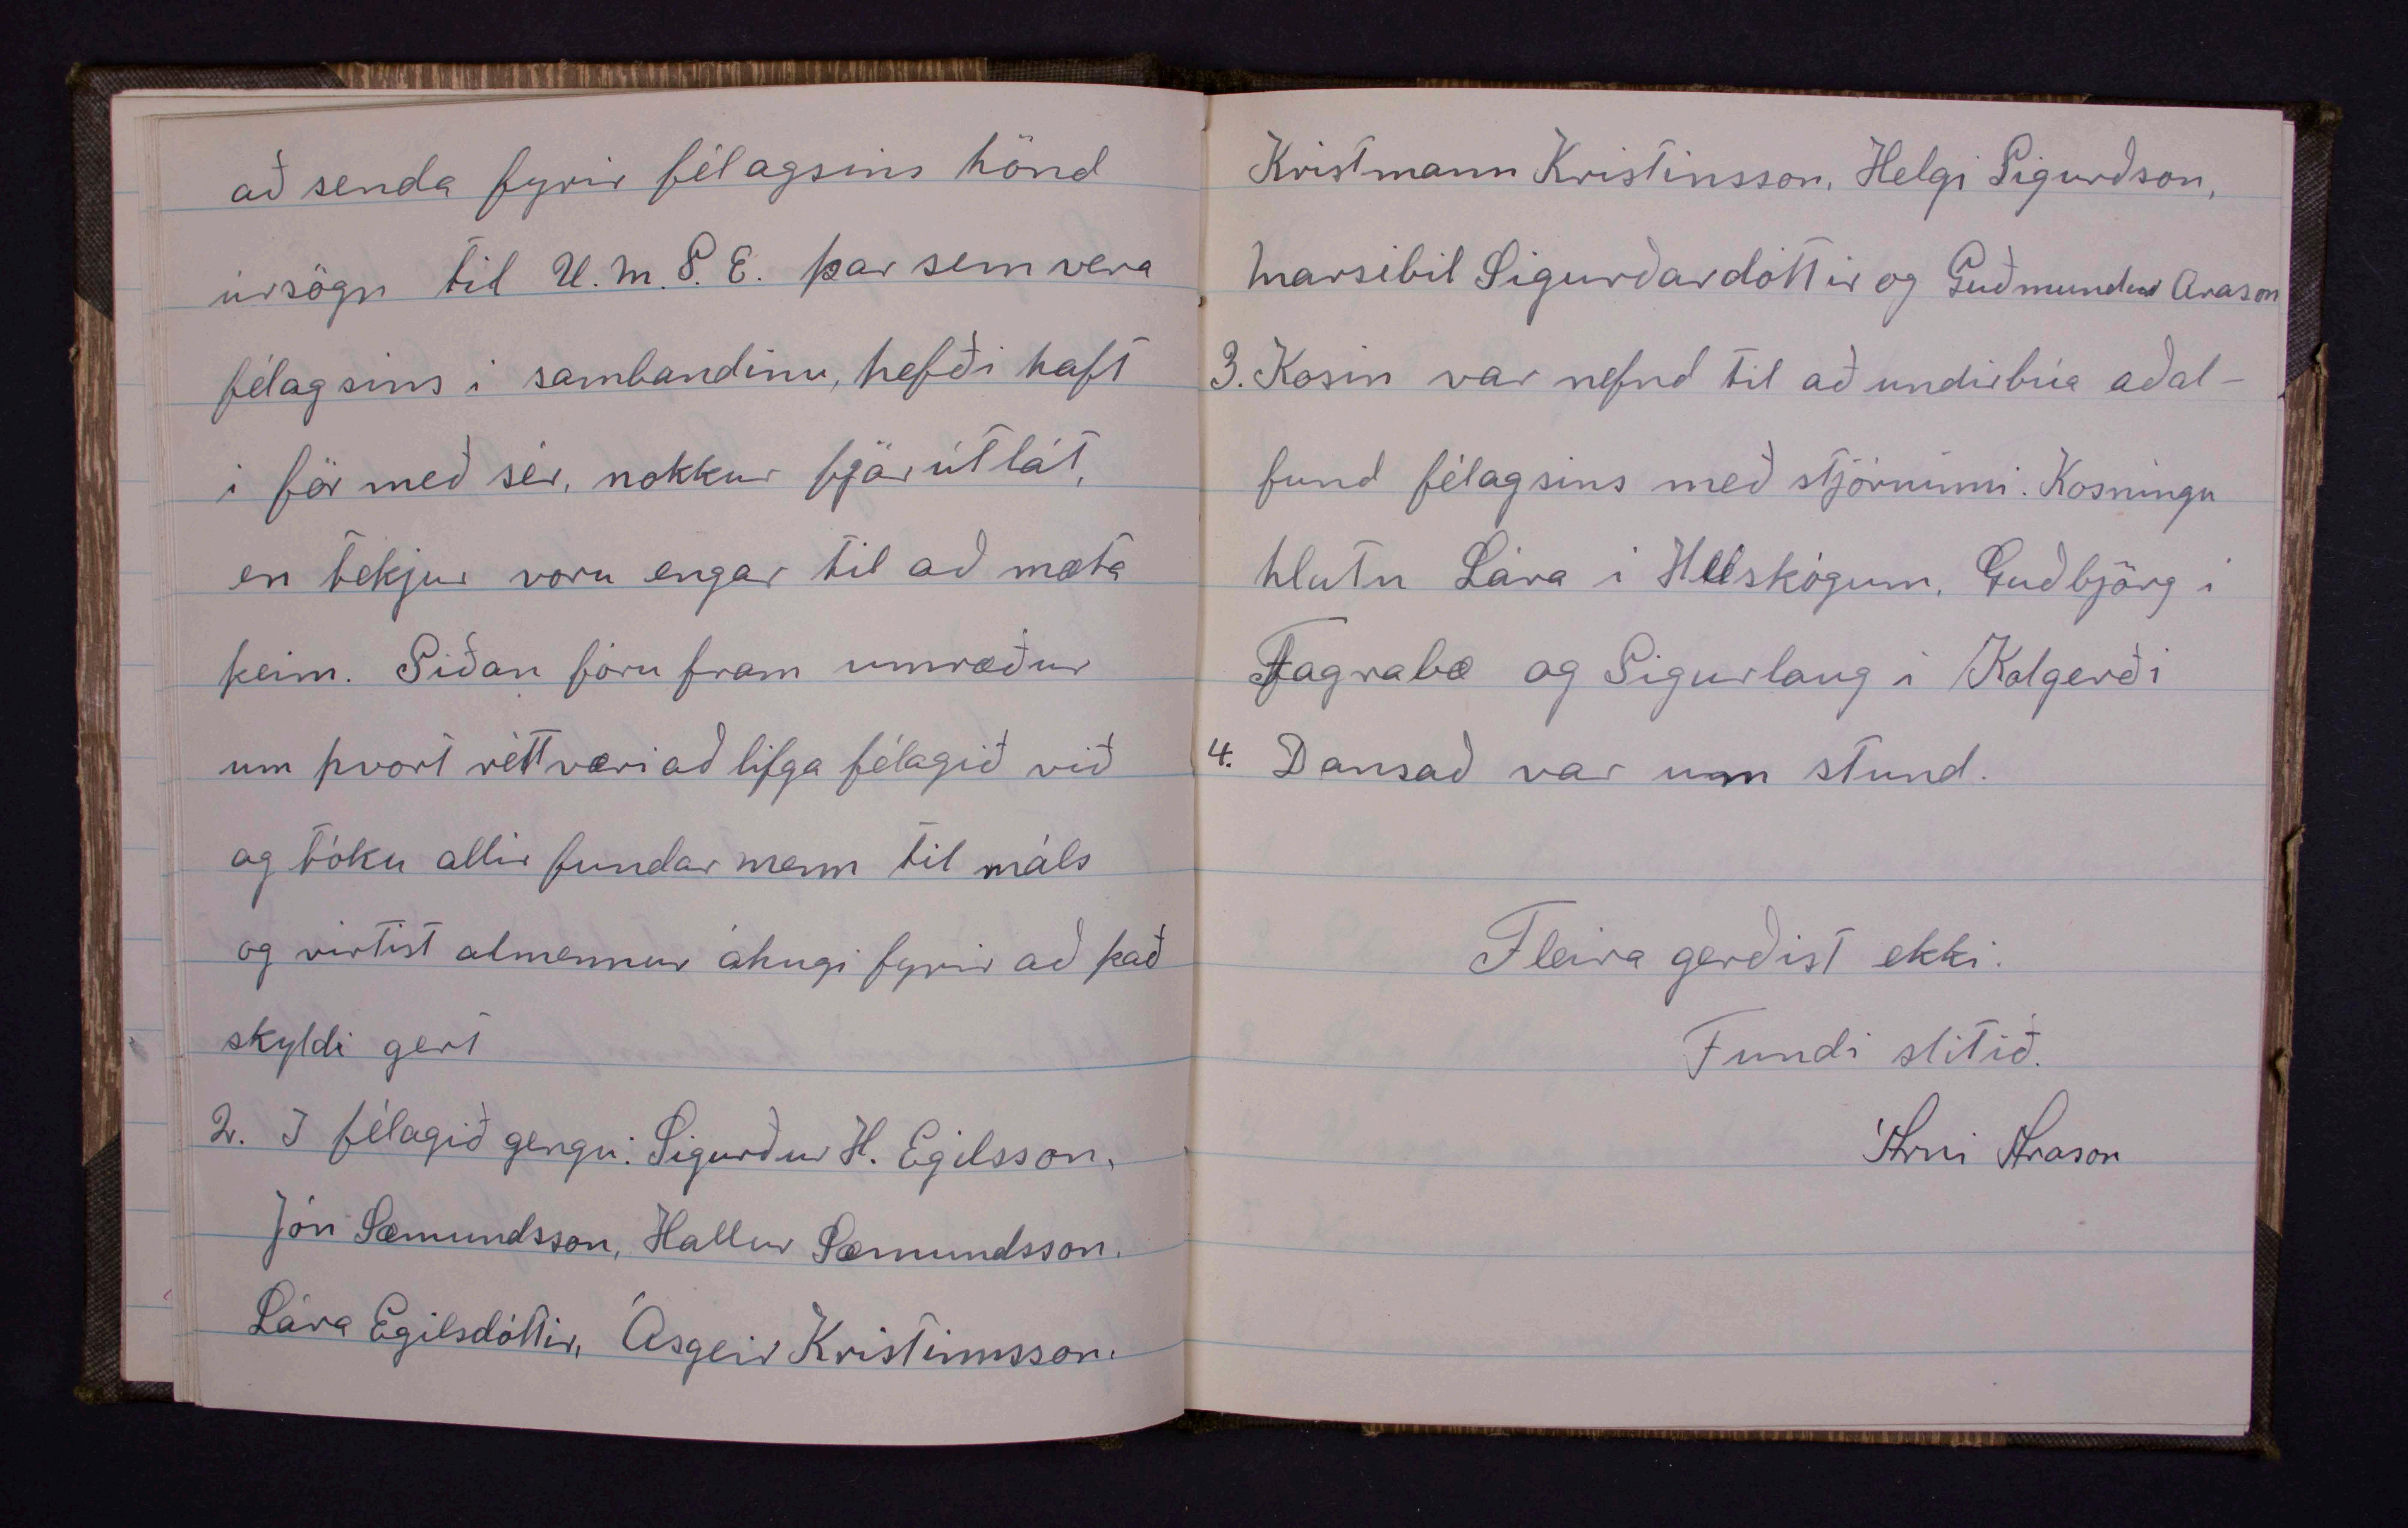 að senda fyrir félagsins hönd
úrsögn til U.M.S.E. þar sem vera
félagsins i sambandinu, hefði haft
i för með sér, nokkur fjárútlát,
en tekjur voru engar til að mæta
þeim. Síðan fóru fram umræður
um hvort rétt væri að lífga félagið við
og tóku allir fundar menn til máls
og virtist almennur áhugi fyrir að það
skyldi gert
2. I félagið gengu: Sigurður H. Egilsson,
Jón Sæmundsson, Hallur Sæmundsson.
Lára Egilsdóttir, Ásgeir Kristinnsson.
Kristmann Kristinsson, Helgi Sigurðson,
Marsibil Sigurðardóttir og Guðmundur Arason
3. Kosin var nefnd til að undirbúa aðal-
fund félagsins með stjórninni. Kosningu
hlutu Lára i Hléskógum, Guðbjörg i
Fagrabæ og Sigurlaug i Kolgerði
4. Dansað var um stund.
Fleira gerðist ekki.
Fundi slitið.
Árni Arason